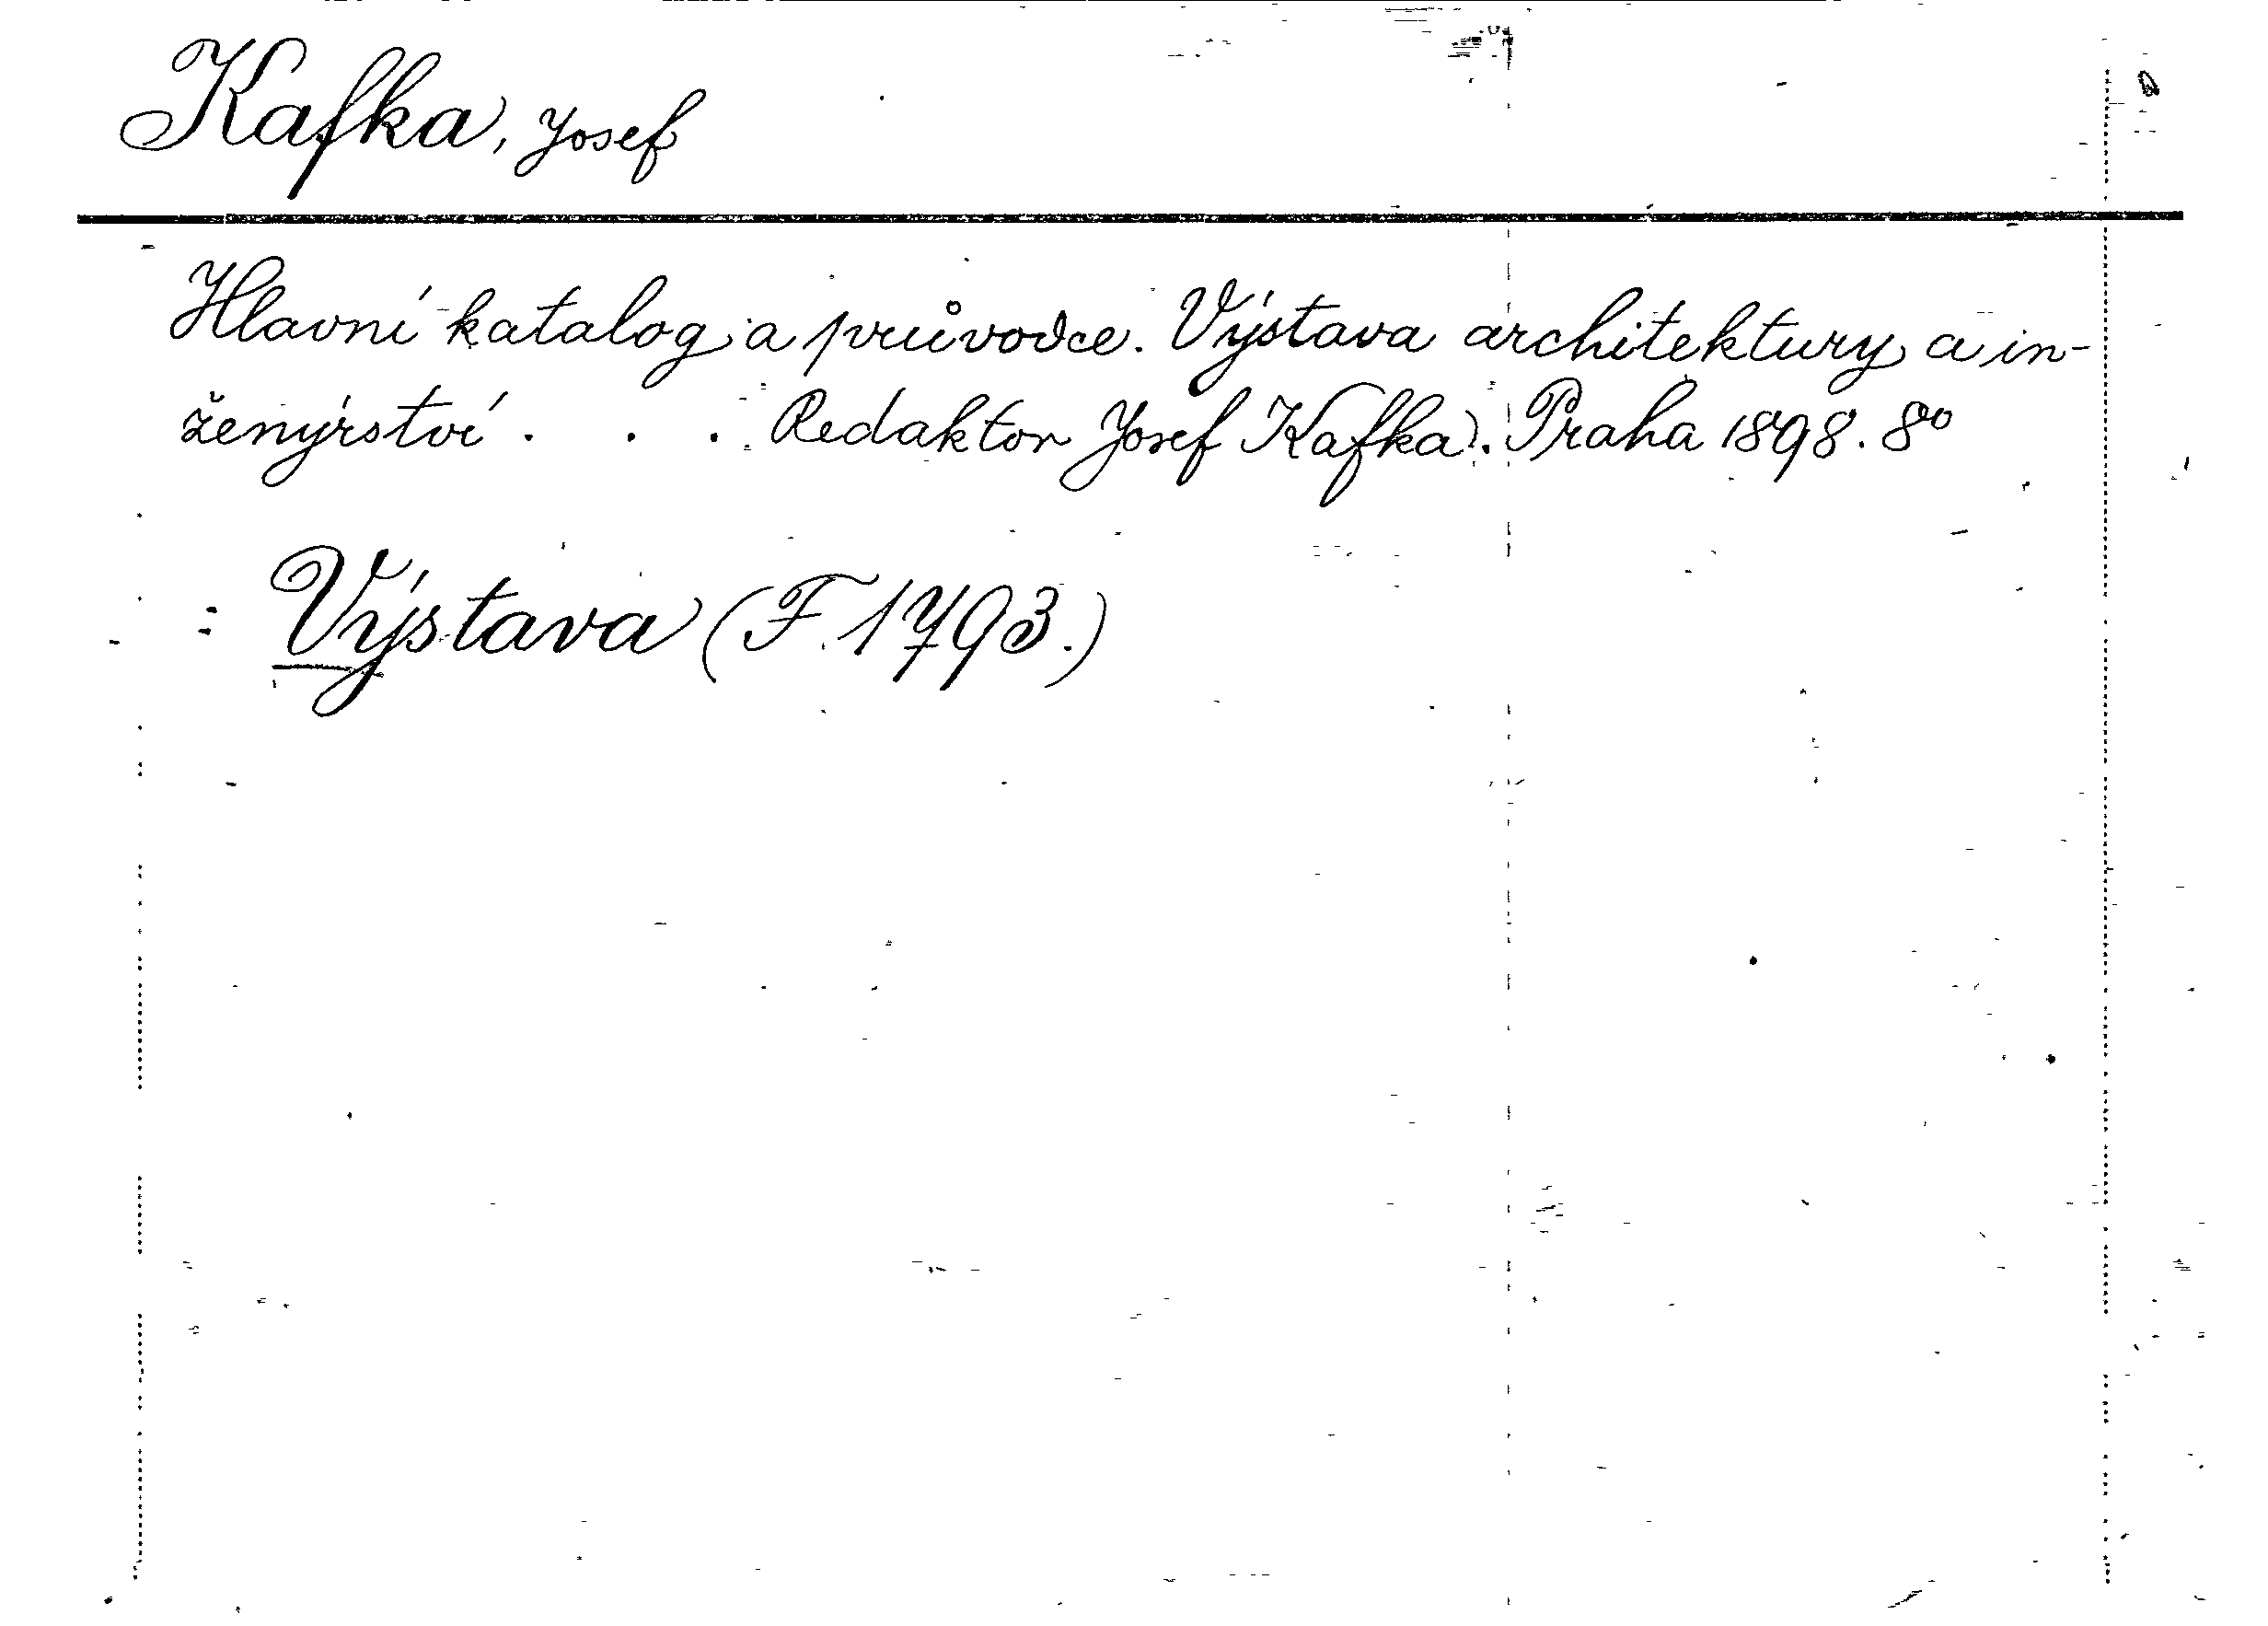 Kafka, Josef
Hlavní katalog a průvodce. Výstava architektury a in-
ženýrství . . . Redaktor Josef Kafka. Praha 1898. 8º
= Výstava (F. 1793.)